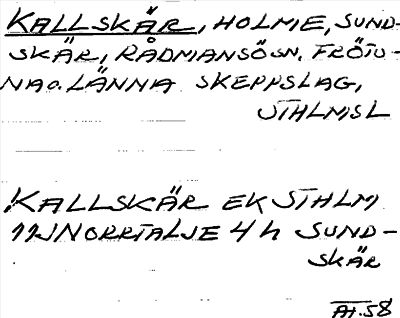 KALLSKÄR, HOLME, SUND-
SKÄR, RÅDMANSÖSN, FRÖTU-
NA O. LÄNNA SKEPPSLAG,
STHLMSL
KALLSKÄR EK STHLM
11J NORRTALJE 4 h SUND-
SKÄR
AI.58